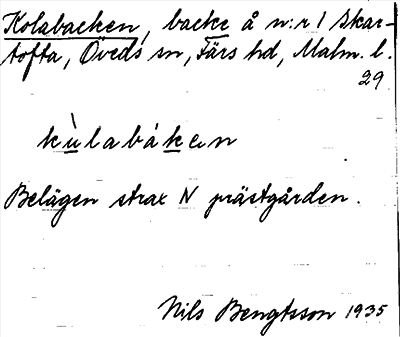 Kolabacken, backe å n:r 1 Skar-
tofta, Öveds sn, Färs hd, Malm. l.
29
kùlabáken
Belägen strax N prästgården.
Nils Bengtsson 1935